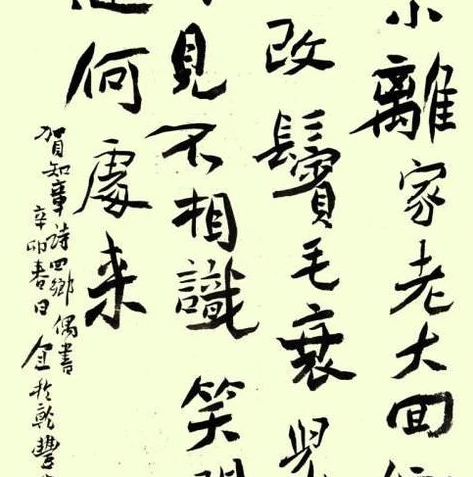 小離家老大回
改鬢毛衰兒
見不相識笑
何處来
賀知章詩回鄉偶書
辛卯春日